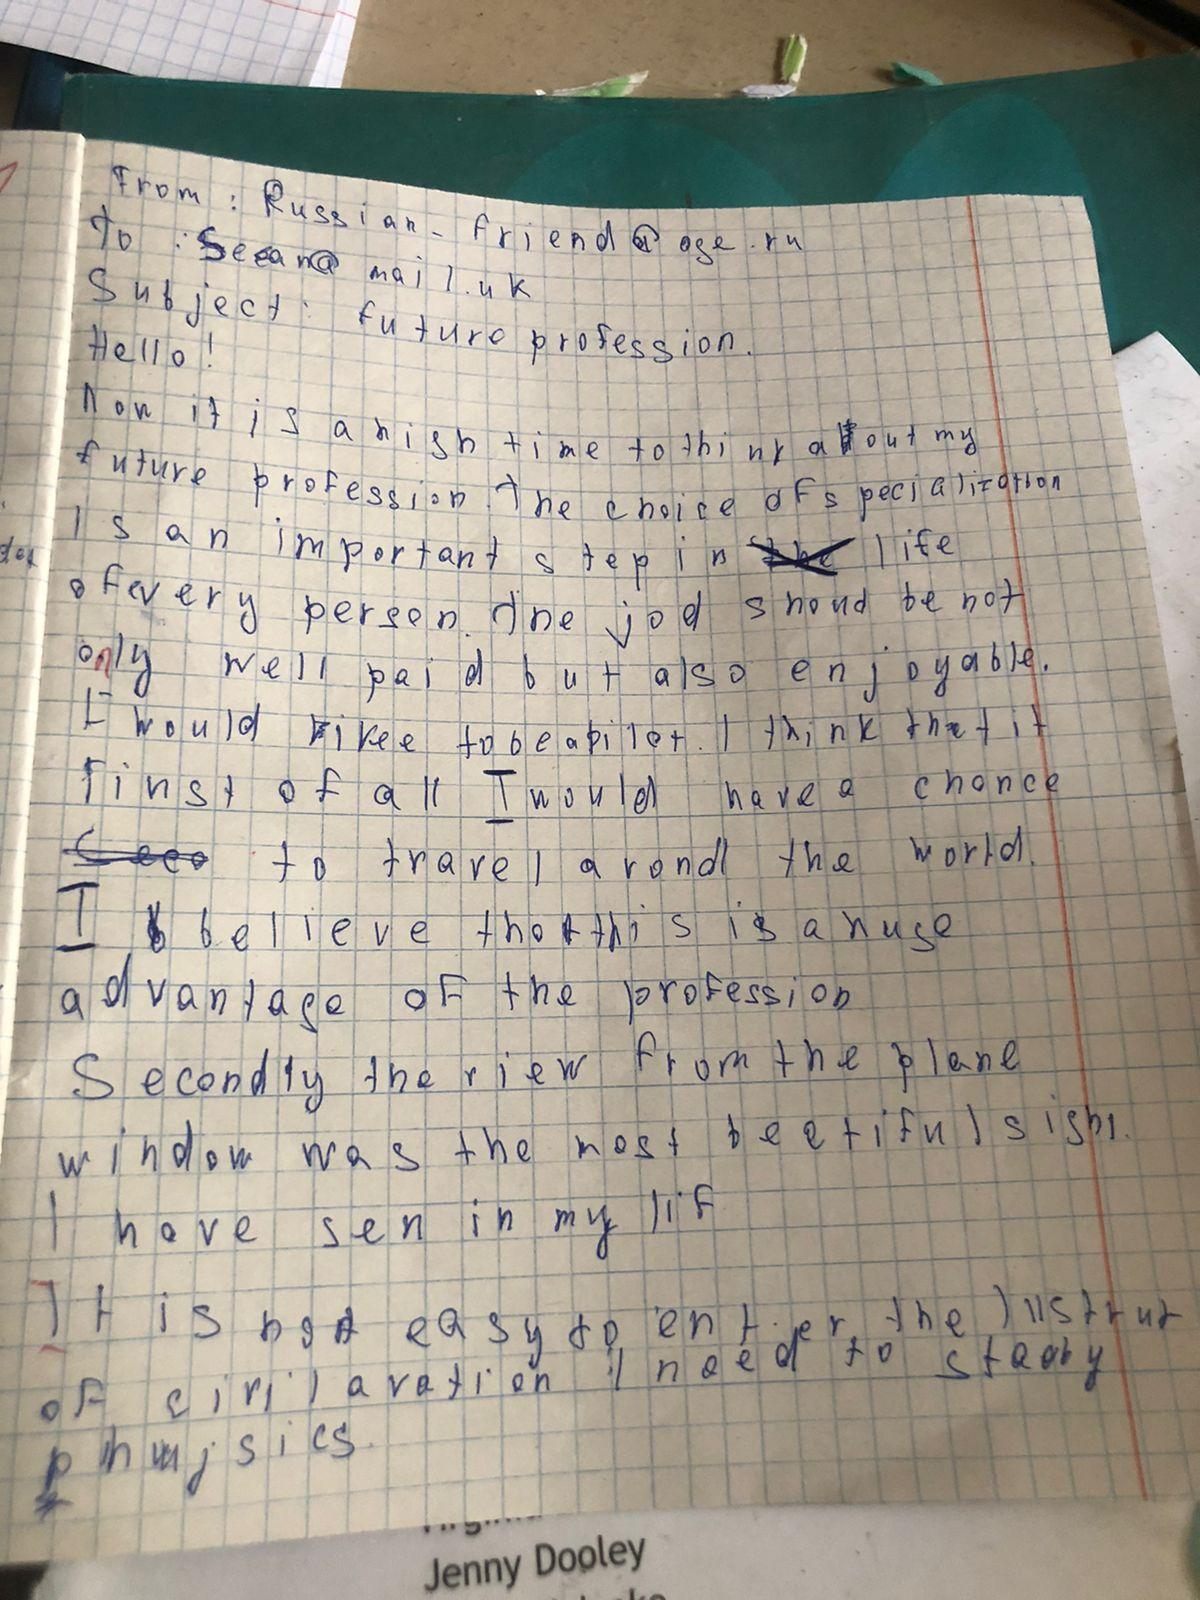 From: Russian-friend@oge.ru
To: Seean@mail.uk
Subject: future profession.
Hello!
Now it is a high time to think about my
future profession. The choice of specialization
Is an important step in life
of every person. The jod shoud be not
only well paid but also enjoyable.
I would likee to be a pilot. I think that it
First of all I would have a chance
to travel arond the world.
I believe that this is a huge
advantage of the profession
Secondly the view from the plane
window was the most beatiful sight.
I have sen in my lif
It is not easy to enter the
of civil avation I need to
Jenny Dooley